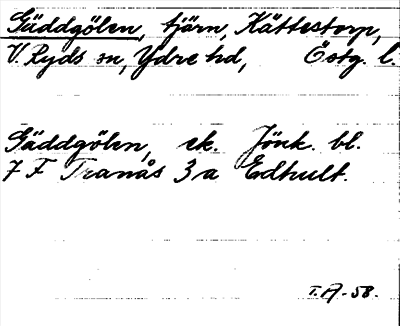 Gäddgölen, tjärn, Kättestorp,
V. Ryds sn, Ydre hd, Östg. l.
Gäddgölen, ek. Jönk. bl.
7 F Tranås 3 a Edhult.
T.A-58.